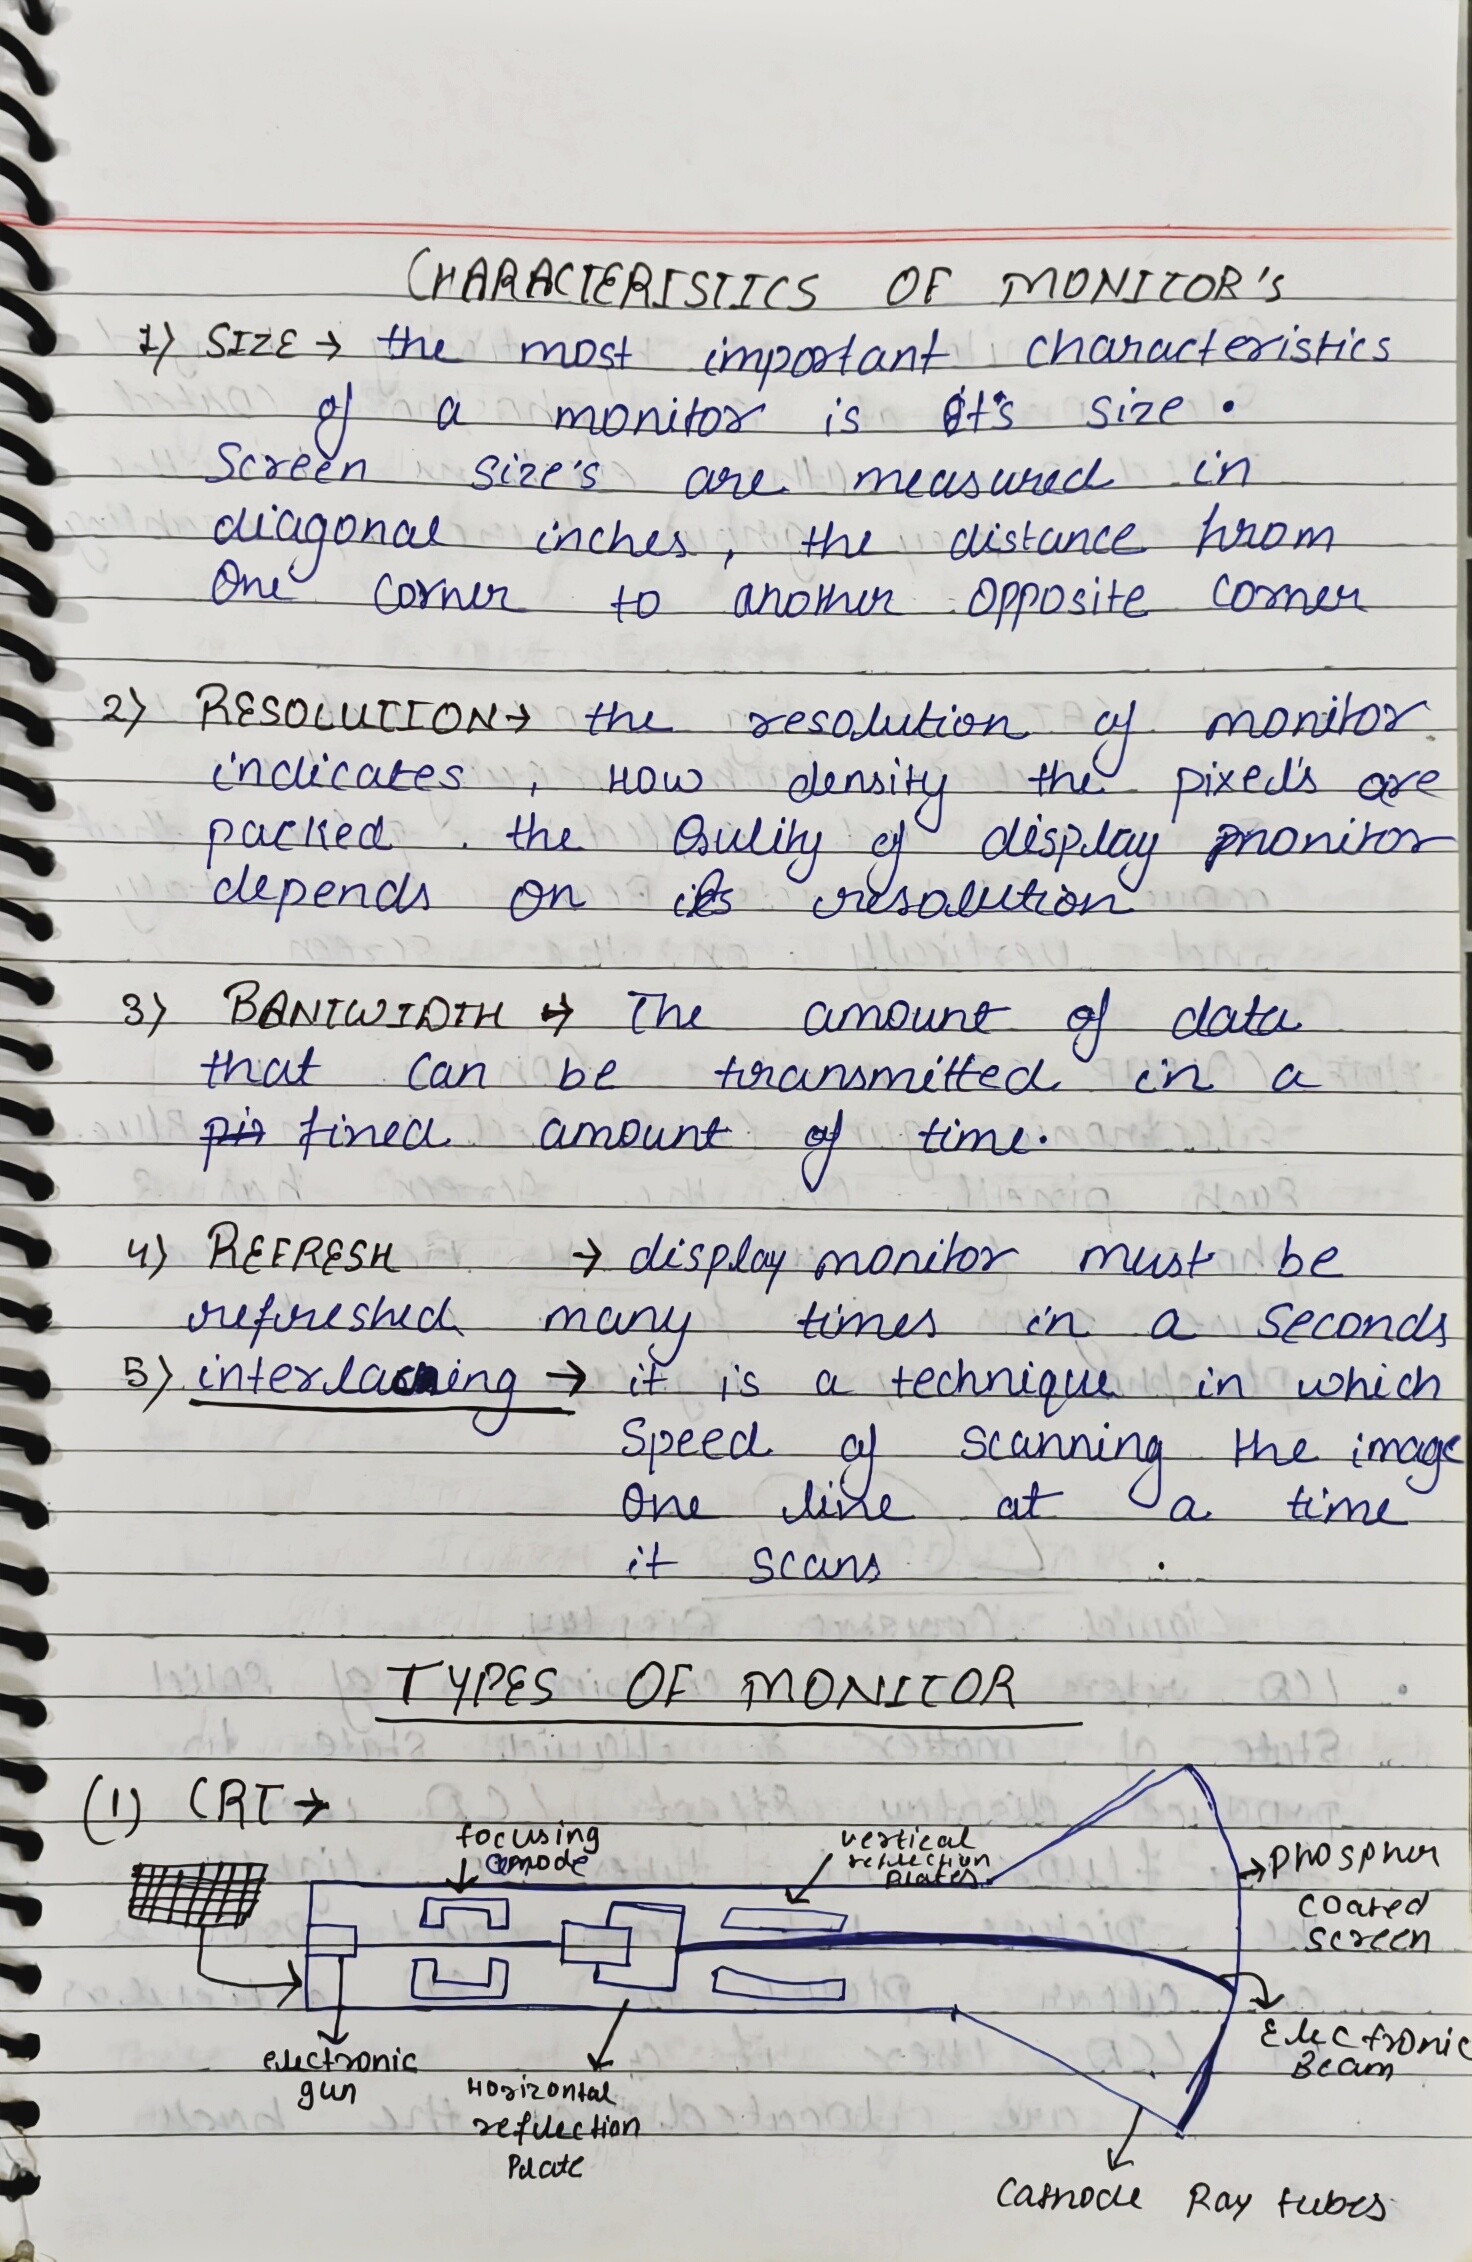 CHARACTERISTICS OF MONITOR's
1) SIZE → the most important characteristics
of a monitor is it's size.
Screen size's are measured in
diagonal inches, the distance from
One corner to another opposite corner
2) RESOLUTION → the resolution of monitor
indicates, How density the pixed's are
packed. the Qulity of display monitor
depends on its resolution
3) BANTWIDTH → The amount of data
that can be transmitted in a
fined amount of time.
4) REFRESH → display monitor must be
refreshed many times in a seconds
5) interlacning → it is a technique in which
Speed of scanning the image
One line at a time
it scans .
TYPES OF MONITOR
(1) CRT →
focusing
anode
vertical
reflection
plates
phospher
coated
screen
electronic
gun
Horizontal
reflection
Plate
Electronic
Beam
Cathode Ray tubes